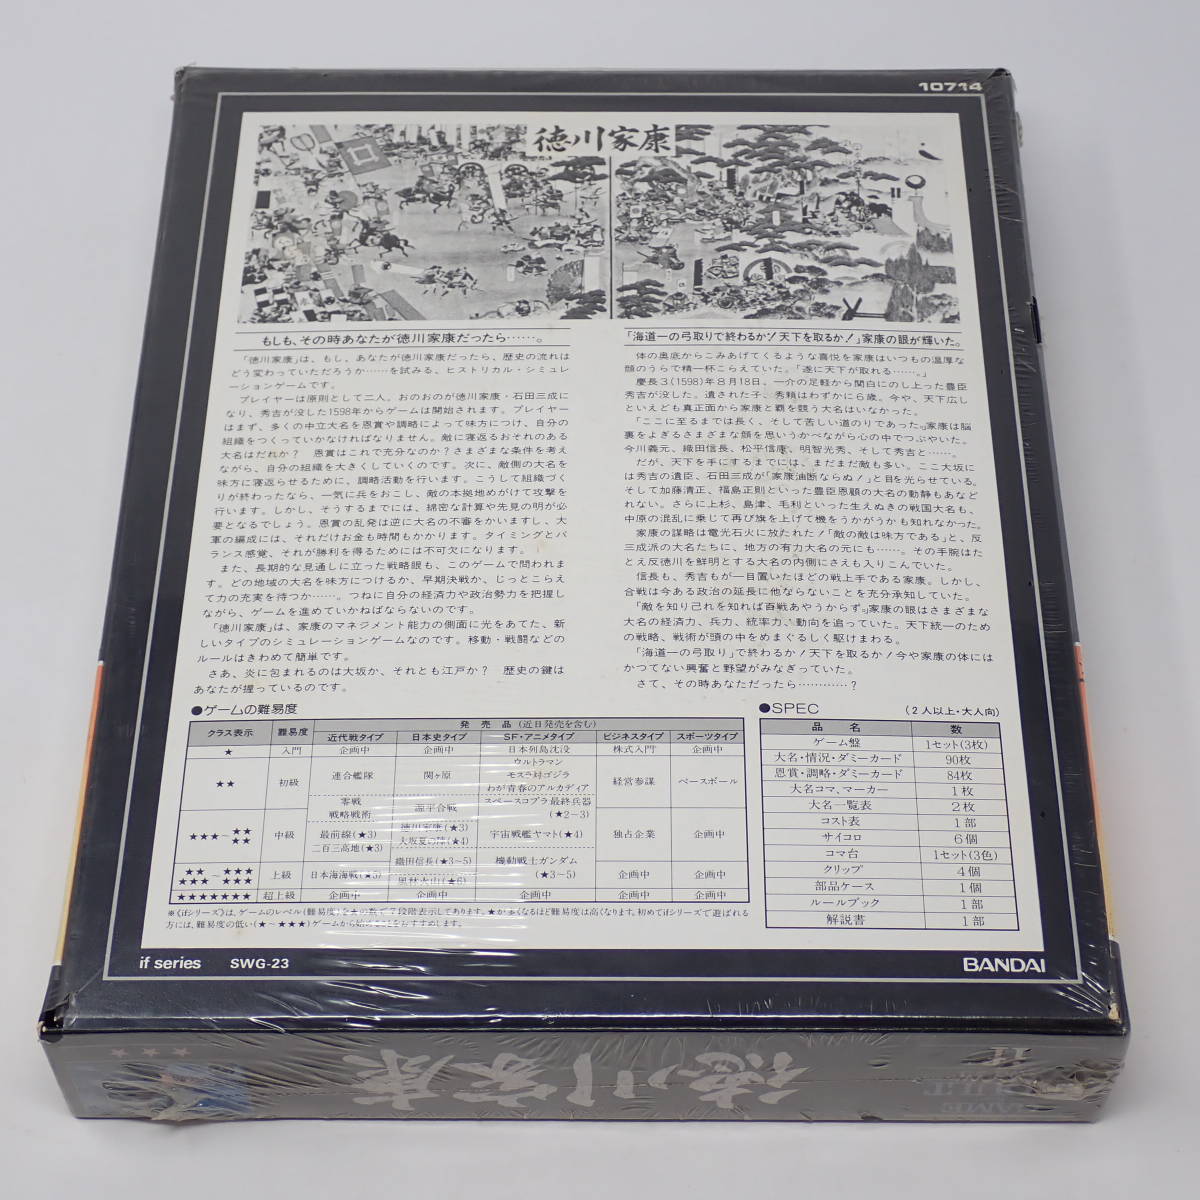 10714
徳川家康
もしも、その時あなたが徳川家康だったら……。
「徳川家康」は、もし、あなたが徳川家康だったら、歴史の流れは
どう変わっていただろうか……を試みる、ヒストリカル・シミュレ
ーションゲームです。
プレイヤーは原則として二人。おのおのが徳川家康・石田三成に
なり、秀吉が没した1598年からゲームは開始されます。プレイヤー
はまず、多くの中立大名を恩賞や調略によって味方につけ、自分の
組織をつくっていかなければなりません。敵に寝返るおそれのある
大名はだれか？　恩賞はこれで充分なのか？さまざまな条件を考え
ながら、自分の組織を大きくしていくのです。次に、敵側の大名を
味方に寝返らせるために、調略活動を行います。こうして組織づく
りが終わったなら、一気に兵をおこし、敵の本拠地めがけて攻撃を
行います。しかし、そうするまでには、綿密な計算や先見の明が必
要となるでしょう。恩賞の乱発は逆に大名の不審をかいますし、大
軍の編成には、それだけお金も時間もかかります。タイミングとバ
ランス感覚、それが勝利を得るためには不可欠になります。
また、長期的な見通しに立った戦略眼も、このゲームで問われま
す。どの地域の大名を味方につけるか、早期決戦か、じっとこらえ
て力の充実を待つか……。つねに自分の経済力や政治勢力を把握し
ながら、ゲームを進めていかねばならないのです。
「徳川家康」は、家康のマネジメント能力の側面に光をあてた、新
しいタイプのシミュレーションゲームなのです。移動・戦闘などの
ルールはきわめて簡単です。
さあ、炎に包まれるのは大坂か、それとも江戸か？　歴史の鍵は
あなたが握っているのです。
「海道一の弓取りで終わるか！天下を取るか！」家康の眼が輝いた。
体の奥底からこみあげてくるような喜悦を家康はいつもの温厚な
顔のうらで精一杯こらえていた。「遂に天下が取れる……。」
慶長3(1598)年8月18日、一介の足軽から関白にのし上った豊臣
秀吉が没した。遺された子、秀頼はわずかに6歳。今や、天下広し
といえども真正面から家康と覇を競う大名はいなかった。
「ここに至るまでは長く、そして苦しい道のりであった。」家康は脳
裏をよぎるさまざまな顔を思いうかべながら心の中でつぶやいた。
今川義元、織田信長、松平信康、明智光秀、そして秀吉と……。
だが、天下を手にするまでには、まだまだ敵も多い。ここ大坂に
は秀吉の遺臣、石田三成が「家康油断ならぬ！」と目を光らせている。
そして加藤清正、福島正則といった豊臣恩顧の大名の動静もあなど
れない。さらに上杉、島津、毛利といった生えぬきの戦国大名も、
中原の混乱に乗じて再び旗を上げて機をうかがうかも知れなかった。
家康の謀略は電光石火に放たれた！「敵の敵は味方である」と、反
三成派の大名たちに、地方の有力大名の元にも……。その手腕はた
とえ反徳川を鮮明とする大名の内側にさえも入りこんでいた。
信長も、秀吉もが一目置いたほどの戦上手である家康。しかし、
合戦は今ある政治の延長に他ならないことを充分承知していた。
「敵を知り己れを知れば百戦あやうからず。」家康の眼はさまざまな
大名の経済力、兵力、統率力、動向を追っていた。天下統一のため
の戦略、戦術が頭の中をめまぐるしく駆けまわる。
「海道一の弓取り」で終わるか！天下を取るか！今や家康の体には
かつてない興奮と野望がみなぎっていた。
さて、その時あなただったら…………？
●ゲームの難易度
クラス表示 難易度 発売品（近日発売を含む）
近代戦タイプ 日本史タイプ SF・アニメタイプ ビジネスタイプ スポーツタイプ
★ 入門 企画中 企画中 日本列島沈没 株式入門 企画中
★★ 初級 連合艦隊 関ヶ原 ウルトラマン モスラ対ゴジラ わが青春のアルカディア 経営参謀 ベースボール
零戦 戦略戦術 源平合戦 スペースコブラ 最終兵器(★2～3)
★★★～★★★★ 中級 最前線(★3) 二百三高地(★3) 徳川家康(★3) 大坂夏の陣(★4) 宇宙戦艦ヤマト(★4) 独占企業 企画中
織田信長(★3～5) 機動戦士ガンダム(★3～5)
★★★★★～★★★★★★ 上級 日本海海戦(★5) 風林火山(★6) 企画中 企画中
★★★★★★★ 超上級 企画中 企画中 企画中 企画中 企画中
※《ifシリーズ》は、ゲームのレベル(難易度)を★の数で7段階表示してあります。★が多くなるほど難易度は高くなります。初めてifシリーズで遊ばれる
方には、難易度の低い(★～★★★)ゲームから始めることをおすすめします。
●SPEC （2人以上・大人向）
品名 数
ゲーム盤 1セット(3枚)
大名・情況・ダミーカード 90枚
恩賞・調略・ダミーカード 84枚
大名コマ、マーカー 1枚
大名一覧表 2枚
コスト表 1部
サイコロ 6個
コマ台 1セット(3色)
クリップ 4個
部品ケース 1個
ルールブック 1部
解説書 1部
if series SWG-23
BANDAI
徳川家康
★★★
if
GAME